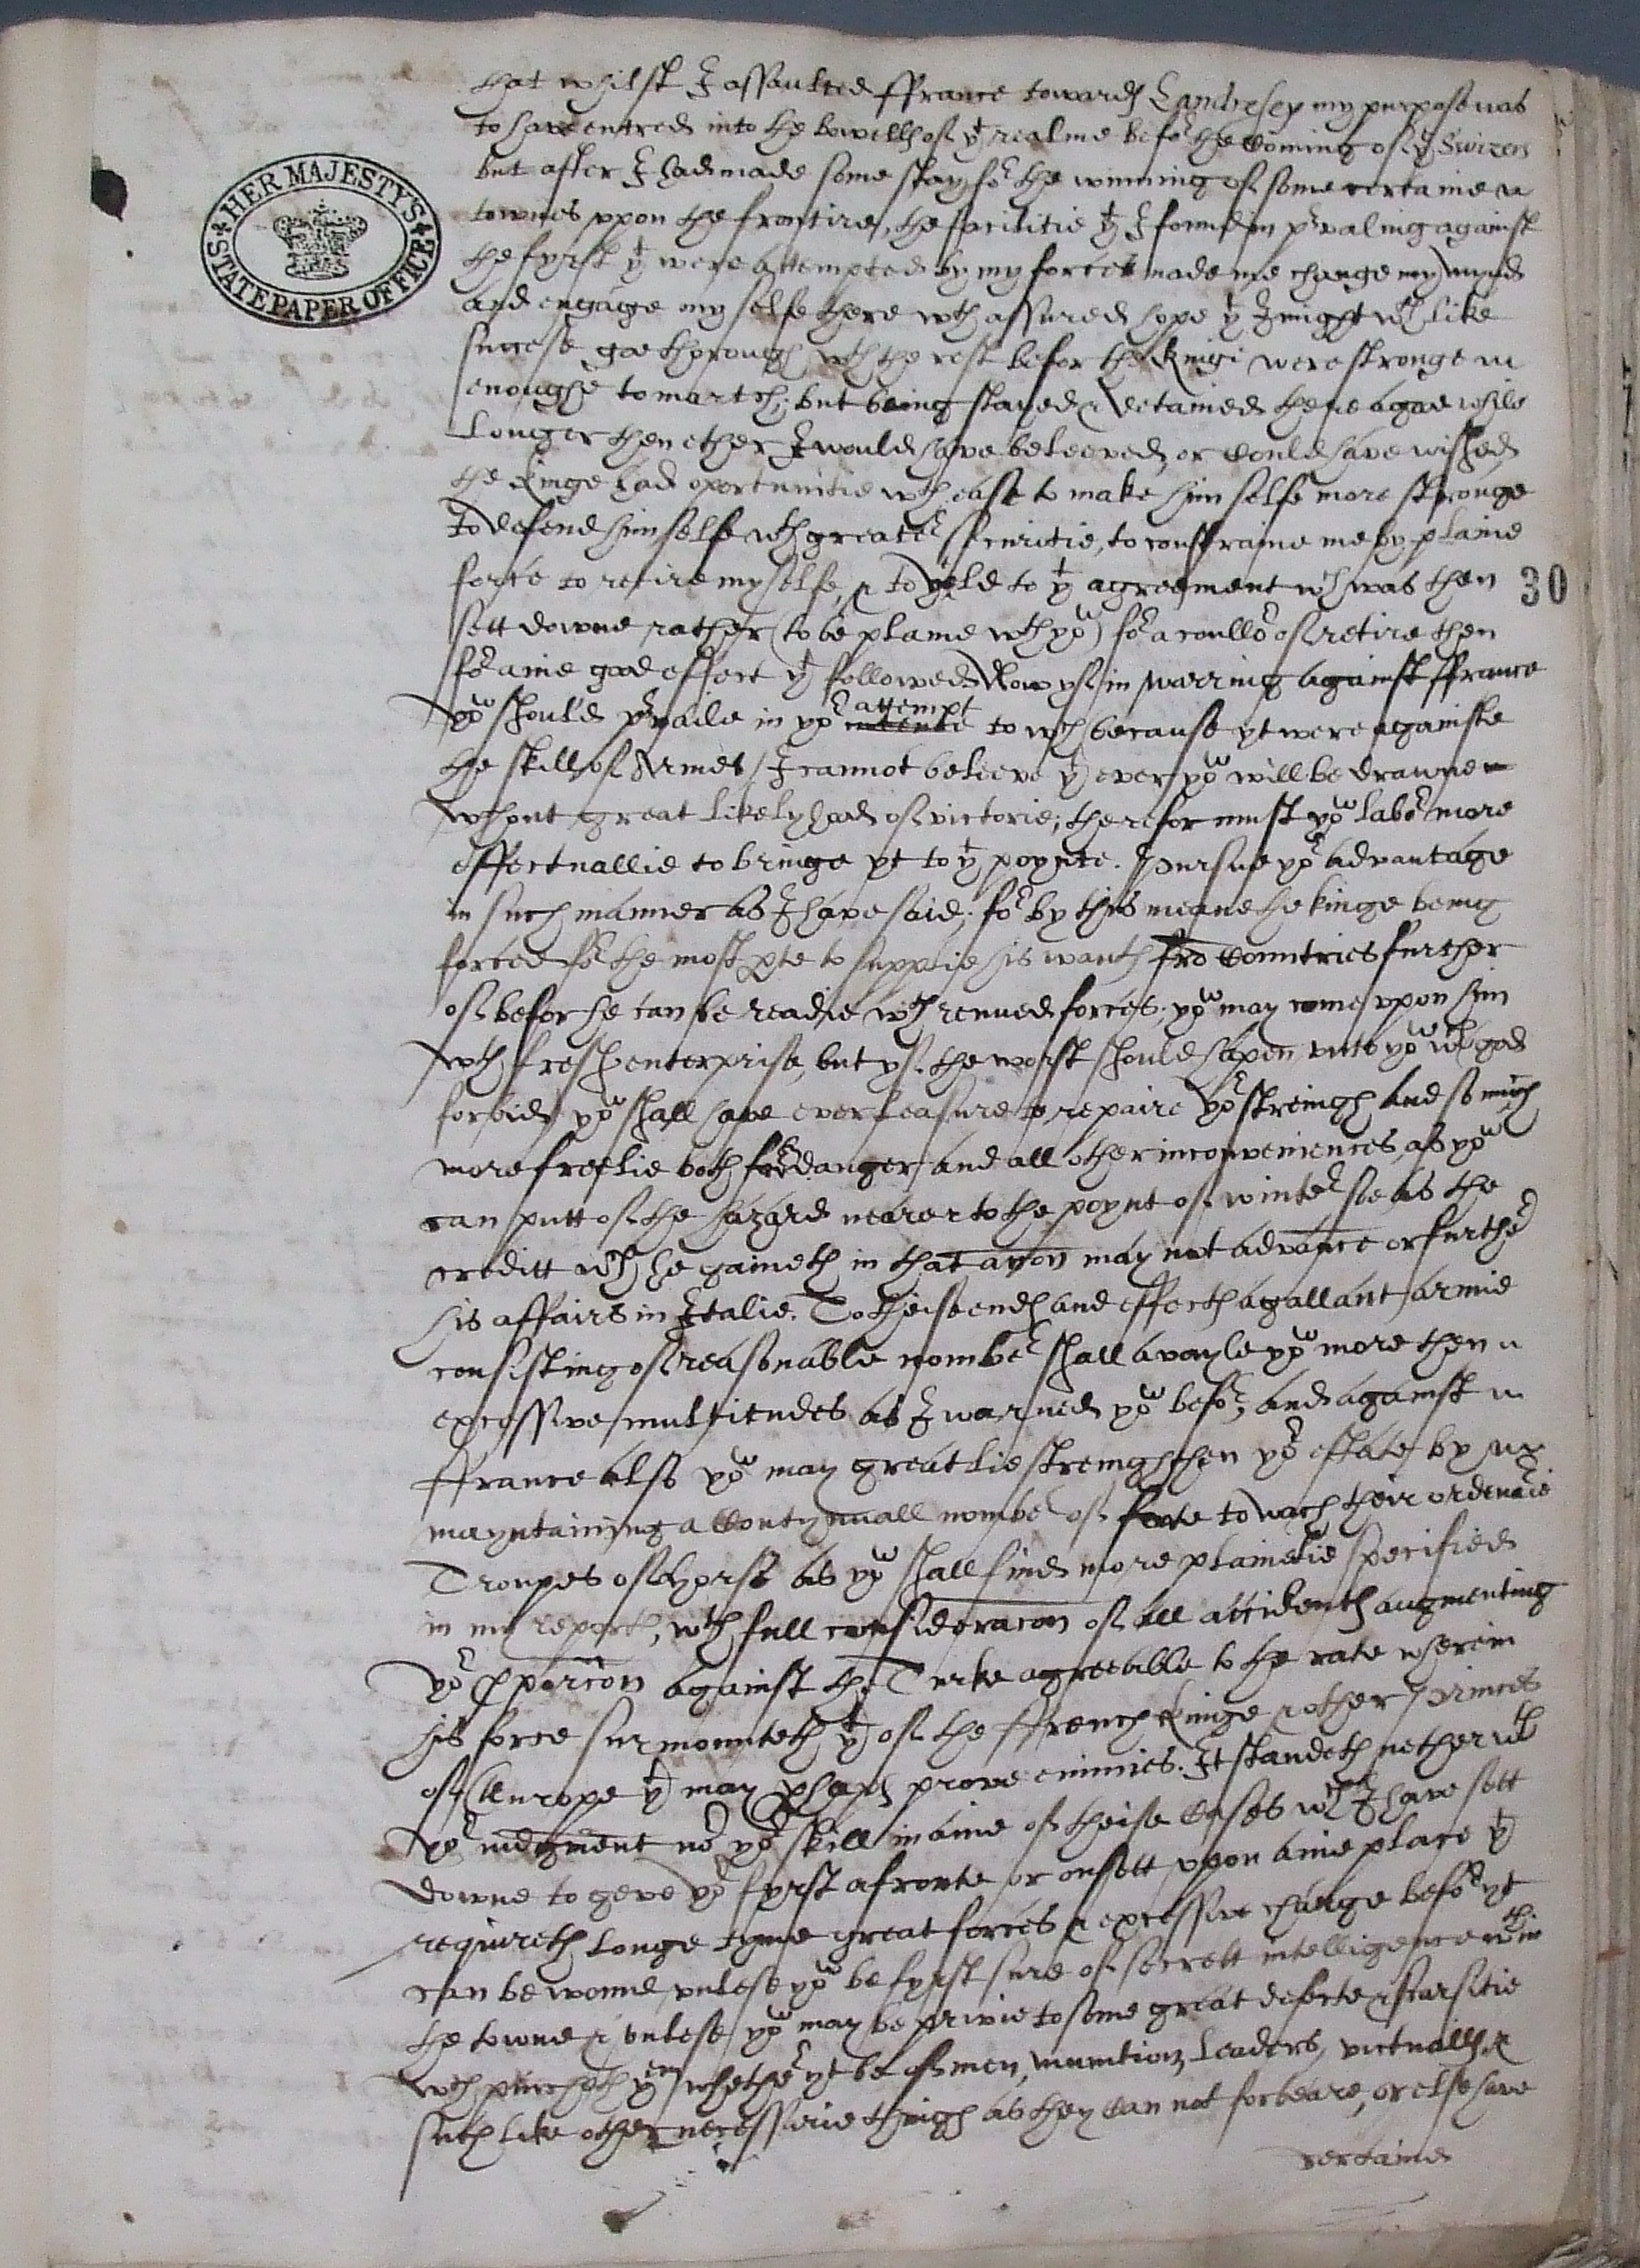 that whilst I assaulted ffrance towards Landresey my purpose was
to have entred into the bowells of yt realme befor the coming of ye Swizers
but after I had made some stay for the winning of some certaine
townes vpon the frontire, the facilitie yt I found in pruailing against
the fyrst yt were attempted by my forces made me change my mynd
and engage my selfe there wth assured hope yt I might wth like
succese goe thorough wth the rest befor the Kinge were stronge
enoughe to martch; but being stayed & detained there a goode while
longer then ether I would have beleeved, or could have wished,
the Kinge had oportunitie wth ease to make him selfe more stronge
to defend him selfe wth greater securitie, to constraine me by plaine
force to retire my selfe, & to yeld to yt agreement wch was then
sett downe rather (to be plaine wth you) for a coullor of retire then
for anie good effect yt followed. Now yf in warring against ffrance
you should prvaile in your intente attempt to wch because yt were againste
the skill of Armes I cannot beleeve yt ever you will be drawne
wthout great likelyhood of victorie; therefor must you labor more
effectuallie to bringe yt to yt poynte. Pursue your advantage
in such manner as I have said; for by this meane the kinge being
forced for the most pte to supplie his wants fro countries further
of befor he can be readie wth renued forces; you may come vpon him
wth fresh enterprise, but yf the worst should hapen vnto you wch god
forbid, you shall have ever leasure to repaire your streingth and so much
more freelie both from danger and all other inconveniences, as you
can putt of the hazard nearer to the poynt of winter so as the
creditt wch he gaineth in that acon may not advance or further
his affaires in Italie. To theise ends and effects a gallant armie
consisting of reasonable nomber shall avayle you more then
excessive multitudes as I warned you befor, and against
ffrance also you may greatlie streingthen your estate by
mayntaining a contynuall nomber of foote to wach their ordenarie
Troupes of horse as you shall find more plainelie specified
in my reports, wth full consideracon of all accidents augmenting
your pparcon against the Turke agreeable to the rate wherein
his force surmounteth yt of the ffrench Kinge & other Princes
of Europe yt may phaps prove enimies. It standeth nether wth
your iudgment nor your skill in anie of theise cases wch I have sett
downe to geve your fyrst afronte or onsett vpon anie place yt
requireth longe tyme great forces & excessive charge befor yt
can be wonne, vnlese you be fyrst sure of secrett intelligence wthin
the towne & vnlese you may be privie to some great defecte & scarsitie
wch pincheth them whether yt be of men, munition, leaders, victualls, &
such like other necessarie things as they can not forbeare, or else have
certaine
30
HER MAJESTY'S
STATE PAPER OFFICE